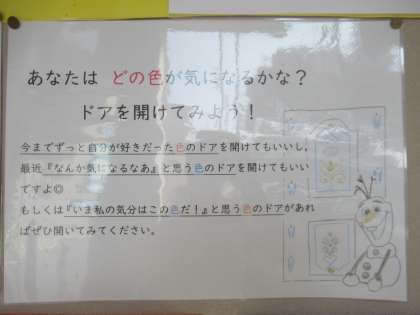 あなたは どの色が気になるかな？
ドアを開けてみよう！
今までずっと自分が好きだった色のドアを開けてもいいし、
最近『なんか気になるなあ』と思う色のドアを開けてもいい
ですよ◎
もしくは『いま私の気分はこの色だ！』と思う色のドアがあれ
ばぜひ開いてみてください。